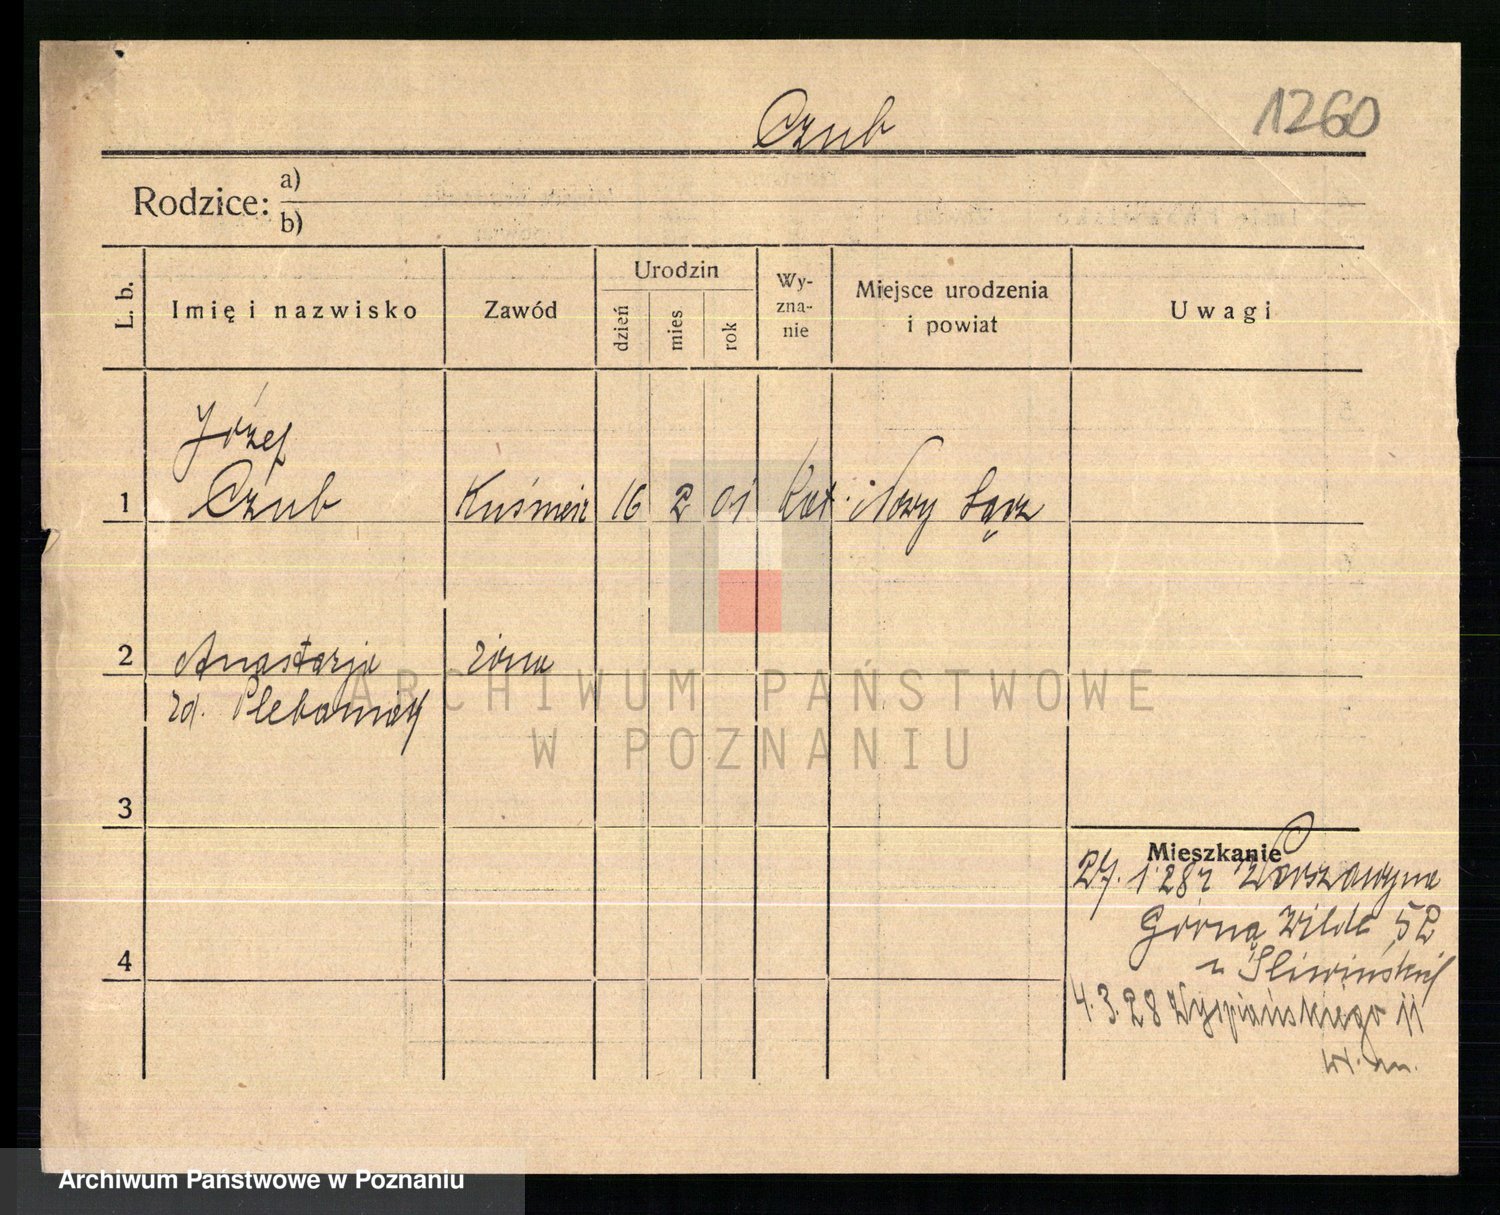 Czub
1260
Rodzice: a)
b)
L. b.
Imię i nazwisko
Zawód
Urodzin
dzień
mies
rok
Wy-
zna-
nie
Miejsce urodzenia
i powiat
Uwagi
Józef
1 Czub Kuśnierz 16 2 01 kat. Nowy Sącz
2 Anastazja żona
zd.
3
4
Mieszkanie
27. 1 28 z
Górna Wilda 52
u
4. 3. 28 Wyspiańskiego 11
ARCHIWUM PAŃSTWOWE
W POZNANIU
Archiwum Państwowe w Poznaniu